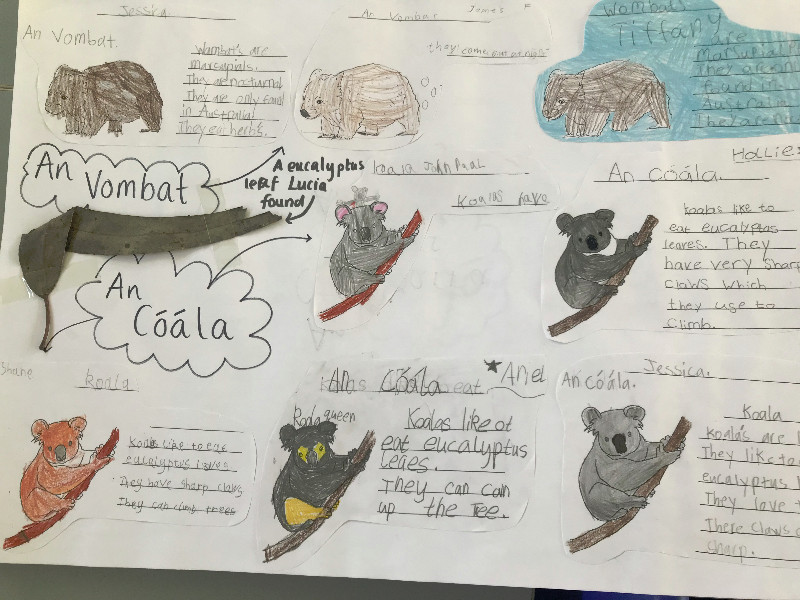 Jessica
An Vombat.
Wombat's are
marcupials.
They are noturnal
They are only found
in Australia
They eat herbs.
An Vombat
James F
they come out at night
Wombats
Tiffany
are
Marsupial
They are
found in
Australia
They are
An
Vombat
A eucalyptus
leaf Lucia
found
An
Cóála
koala John Paul
Koalas have
Hollie
An Cóála.
koalas like to
eat eucalyptus
leaves. They
have very sharp
claws which
they use to
climb.
Shane
koala
Koalas like to eat
eucalyptus leaves
They have sharp claws
They can climb trees
An Cóála
Anel
Koala queen
Koalas like ot
eat eucalyptus
leaes.
They can can
up the Tree.
Jessica.
An cóála.
Koala
Koala's are
They like to
eucalyptus
They love t
There claws
sharp.